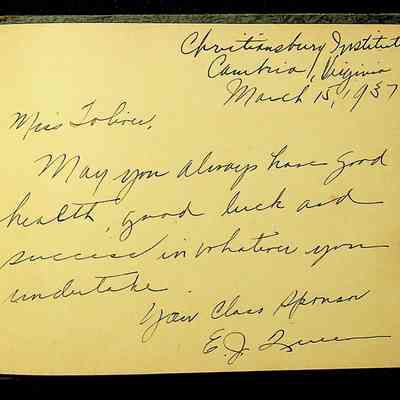 Christiansburg Institut
Cambria, Virginia
March 15, 1937
Miss
May you always have good
health, good luck and
success in whatever you
undertake.
Your Class Sponsor
E. J.